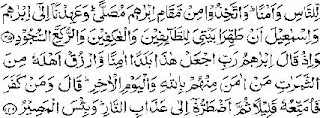 لِلنَّاسِ وَأَمْنًا وَٱتَّخِذُوا۟ مِن مَّقَامِ إِبْرَٰهِـۧمَ مُصَلًّى ۖ وَعَهِدْنَآ إِلَىٰٓ إِبْرَٰهِـۧمَ
وَإِسْمَٰعِيلَ أَن طَهِّرَا بَيْتِىَ لِلطَّآئِفِينَ وَٱلْعَٰكِفِينَ وَٱلرُّكَّعِ ٱلسُّجُودِ ١٢٥
وَإِذْ قَالَ إِبْرَٰهِـۧمُ رَبِّ ٱجْعَلْ هَٰذَا بَلَدًا ءَامِنًا وَٱرْزُقْ أَهْلَهُۥ مِنَ
ٱلثَّمَرَٰتِ مَنْ ءَامَنَ مِنْهُم بِٱللَّهِ وَٱلْيَوْمِ ٱلْـَٔاخِرِ ۖ قَالَ وَمَن كَفَرَ
فَأُمَتِّعُهُۥ قَلِيلًا ثُمَّ أَضْطَرُّهُۥٓ إِلَىٰ عَذَابِ ٱلنَّارِ ۖ وَبِئْسَ ٱلْمَصِيرُ ١٢٦